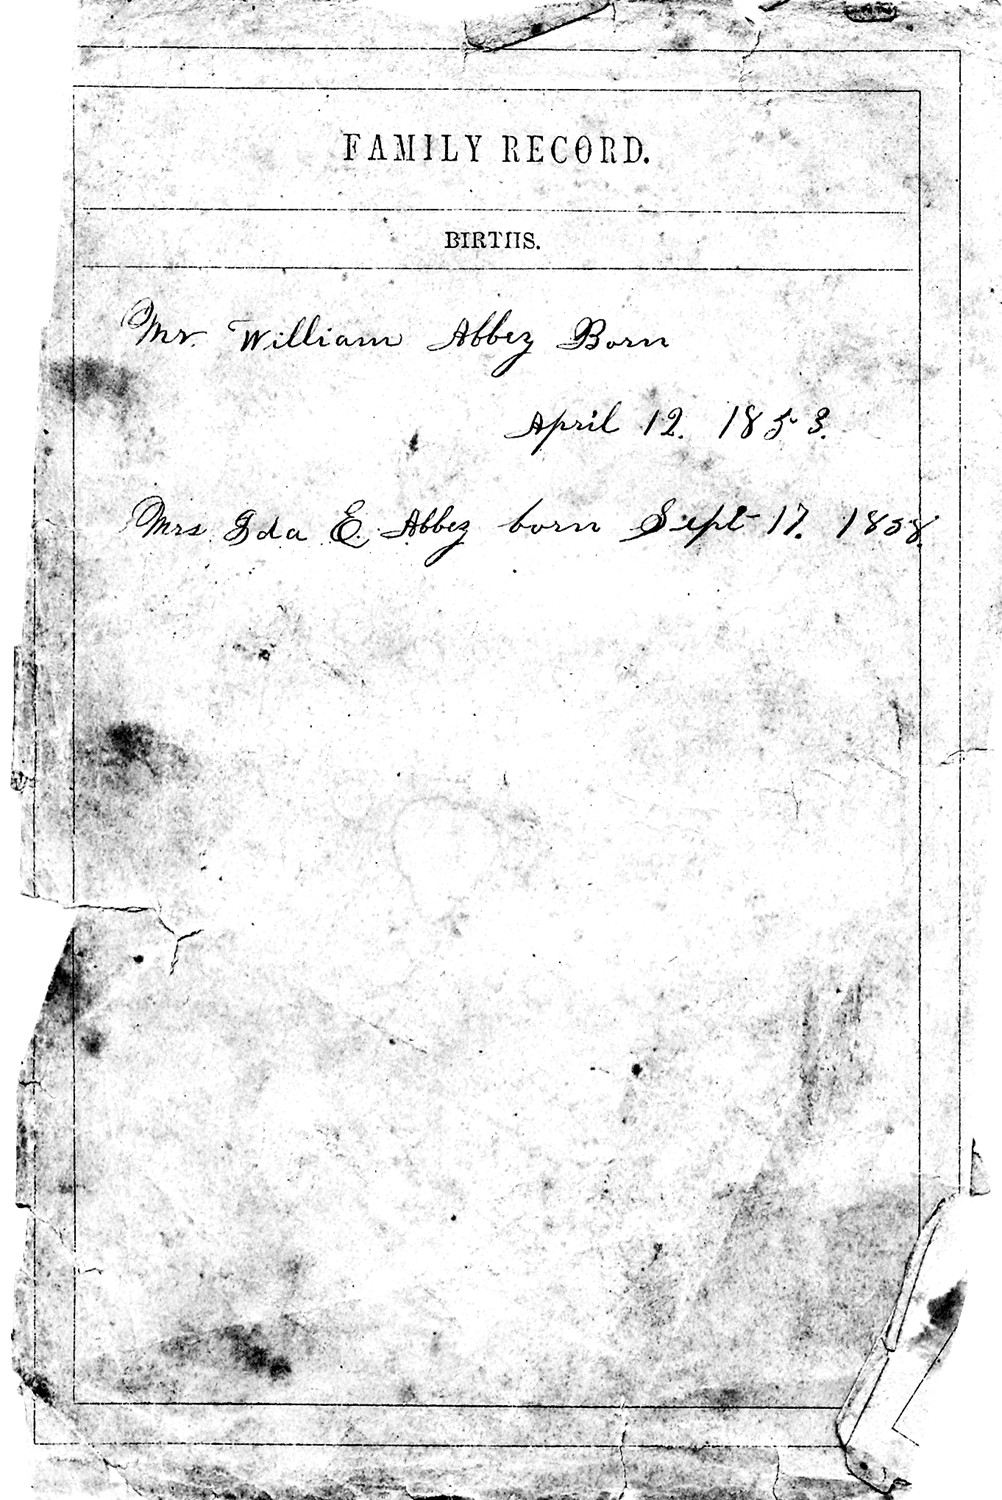 FAMILY RECORD.
BIRTHS.
Mr. William Abbey Born
April 12. 1853.
Mrs. Ida E. Abbey born Sept 17. 1858.